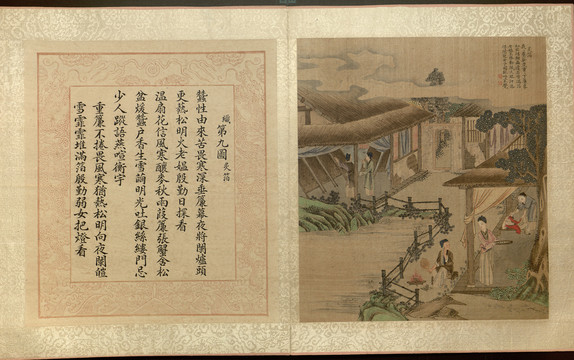 織 第九圖 炙箔
蠶性由來苦畏寒深垂簾幕夜將闌爐頭
更爇松明火老媼殷勤日探看
溫扇花信風寒釀麥秋雨葭簾張蟹舍松
盆煖蠶戶香生雪繭明光吐銀絲縷門忌
少人蹤語燕喧衡宇
重簾不捲畏風寒猶爇松明向夜闌皚
雪霏霏堆滿箔殷勤弱女把燈看